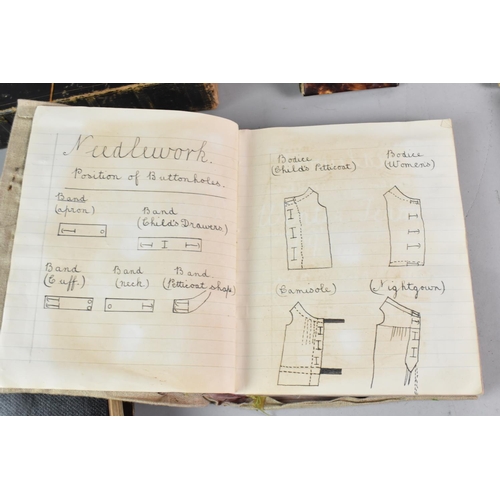 Needlework.
Position of Buttonholes.
Band
(apron)
Band
(Child's Drawers)
Band
(Cuff.)
Band
(neck)
Band
(Petticoat shape)
Bodice
(Child's Petticoat)
Bodice
(Womens)
(Camisole)
(Nightgown)